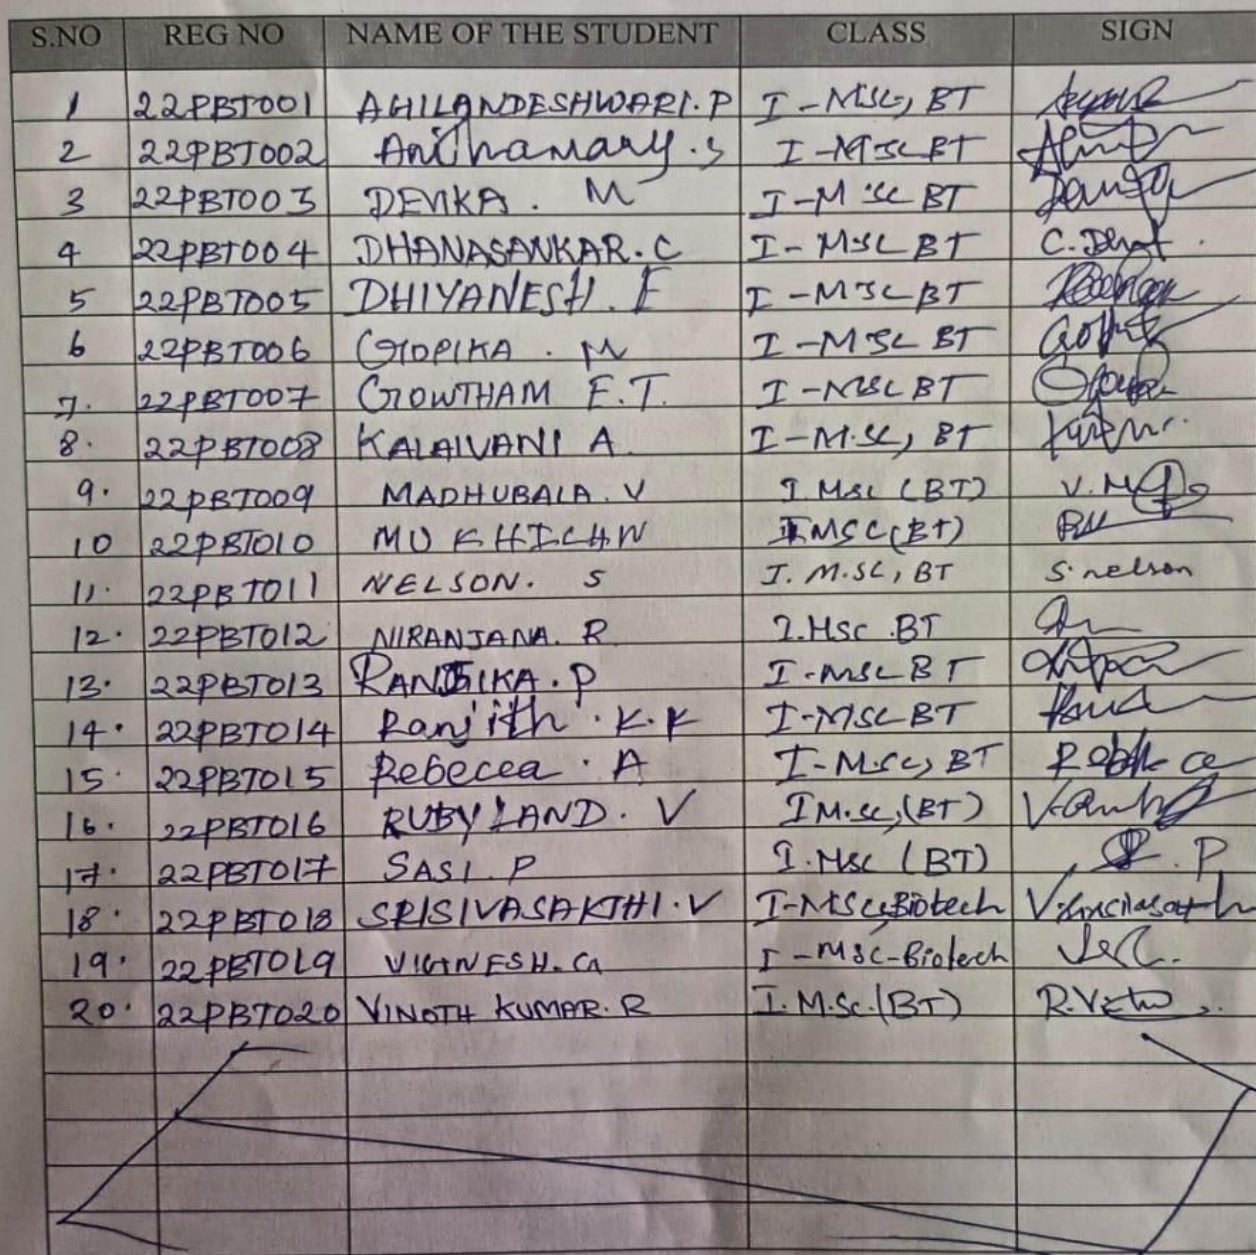 S.NO REG NO NAME OF THE STUDENT CLASS SIGN
1 22PBT001 AHILANDESHWARI.P I-MSC, BT
2 22PBT002 Anthamary.s I-MSC BT
3 22PBT003 DEVIKA. M I-M SC BT
4 22PBT004 DHANASANKAR.C I-MSC BT C.
5 22PBT005 DHIYANESH. E I-MSC BT
6 22PBT006 GOPIKA. M I-MSC BT
7. 22PBT007 GOWTHAM E.T. I-MSC BT
8. 22PBT008 KALAIVANI A. I-M.SC, BT
9. 22PBT009 MADHUBALA. V I MSC (BT) V.
10 22PBT010 I MSC (BT)
11. 22PBT011 NELSON. S I. M.SC, BT S. nelson
12. 22PBT012 NIRANJANA. R I.MSC.BT
13. 22PBT013 I-MSC BT
14. 22PBT014 Ranjith.K.K I-MSC BT
15. 22PBT015 Rebecca.A I-M.SC, BT
16. 22PBT016 RUBYLAND. V I M.SC,(BT)
17. 22PBT017 SASI.P I.MSC (BT) P
18. 22PBT018 SRISIVASAKTHI.V I-MSC,Biotech
19. 22PBT019 VIGNESH.G I-MSC-Biotech
20. 22PBT020 VINOTH KUMAR.R I.M.SC.(BT)